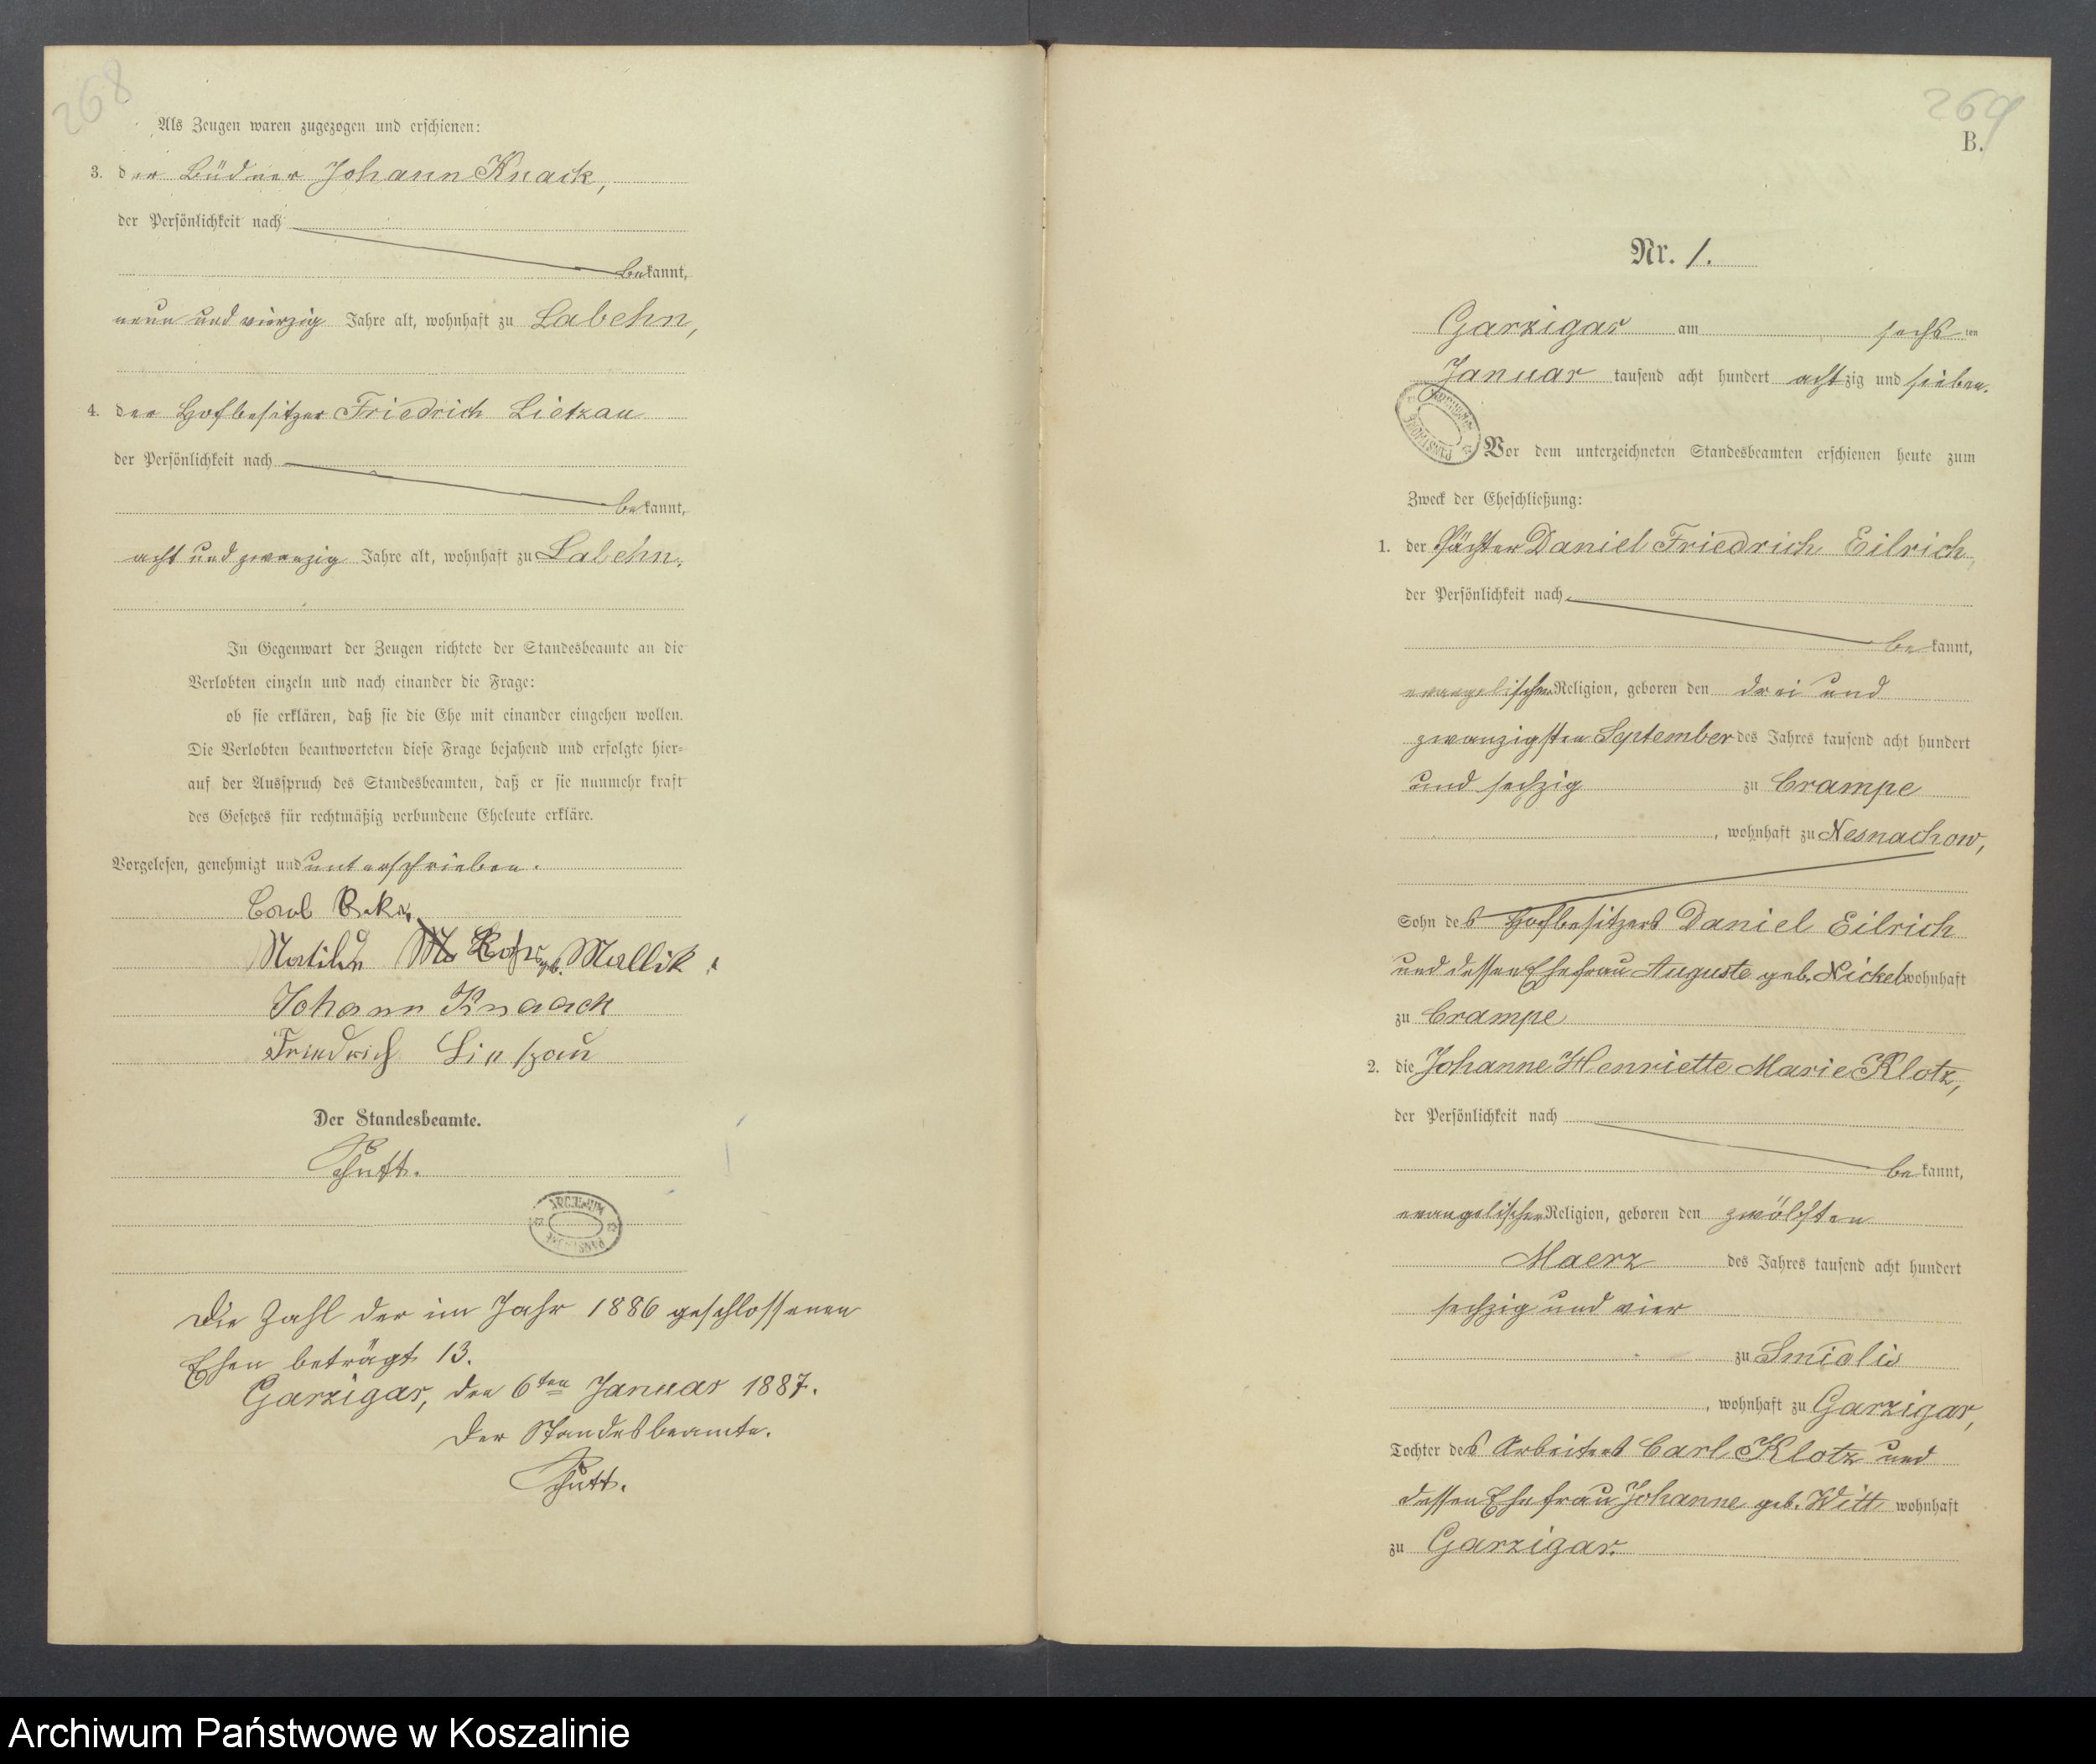 268
Als Zeugen waren zugezogen und erschienen:
3. der Büdner Johann Knack,
der Persönlichkeit nach
bekannt,
neun und vierzig Jahre alt, wohnhaft zu Labehn,
4. der Hofbesitzer Friedrich Lietzau
der Persönlichkeit nach
bekannt,
acht und zwanzig Jahre alt, wohnhaft zu Labehn,
In Gegenwart der Zeugen richtete der Standesbeamte an die
Verlobten einzeln und nach einander die Frage:
ob sie erklären, daß sie die Ehe mit einander eingehen wollen.
Die Verlobten beantworteten diese Frage bejahend und erfolgte hier-
auf der Ausspruch des Standesbeamten, daß er sie nunmehr kraft
des Gesetzes für rechtmäßig verbundene Eheleute erkläre.
Vorgelesen, genehmigt und unterschrieben.
Carl
Matilde geb. Mallik
Johann Knaack
Friedrich Lietzau
Der Standesbeamte.
Die Zahl der im Jahr 1886 geschlossenen
Ehen beträgt 13.
Garzigar, den 6ten Januar 1887.
Der Standesbeamte.
269
B.
Nr. 1.
Garzigar am sechsten
Januar tausend acht hundert achtzig und sieben.
Vor dem unterzeichneten Standesbeamten erschienen heute zum
Zweck der Eheschließung:
1. der Pächter Daniel Friedrich Eilrich,
der Persönlichkeit nach
bekannt,
evangelischer Religion, geboren den drei und
zwanzigsten September des Jahres tausend acht hundert
und sechzig zu Crampe
, wohnhaft zu Nesnachow,
Sohn des Hofbesitzers Daniel Eilrich
und dessen Ehefrau Auguste geb. Nickel wohnhaft
zu Crampe
2. die Johanne Henriette Marie Klotz,
der Persönlichkeit nach
bekannt,
evangelischer Religion, geboren den zwölften
Maerz des Jahres tausend acht hundert
sechzig und vier
zu
, wohnhaft zu Garzigar,
Tochter des Arbeiters Carl Klotz und
dessen Ehefrau Johanne geb. Witt wohnhaft
zu Garzigar.
Archiwum Państwowe w Koszalinie